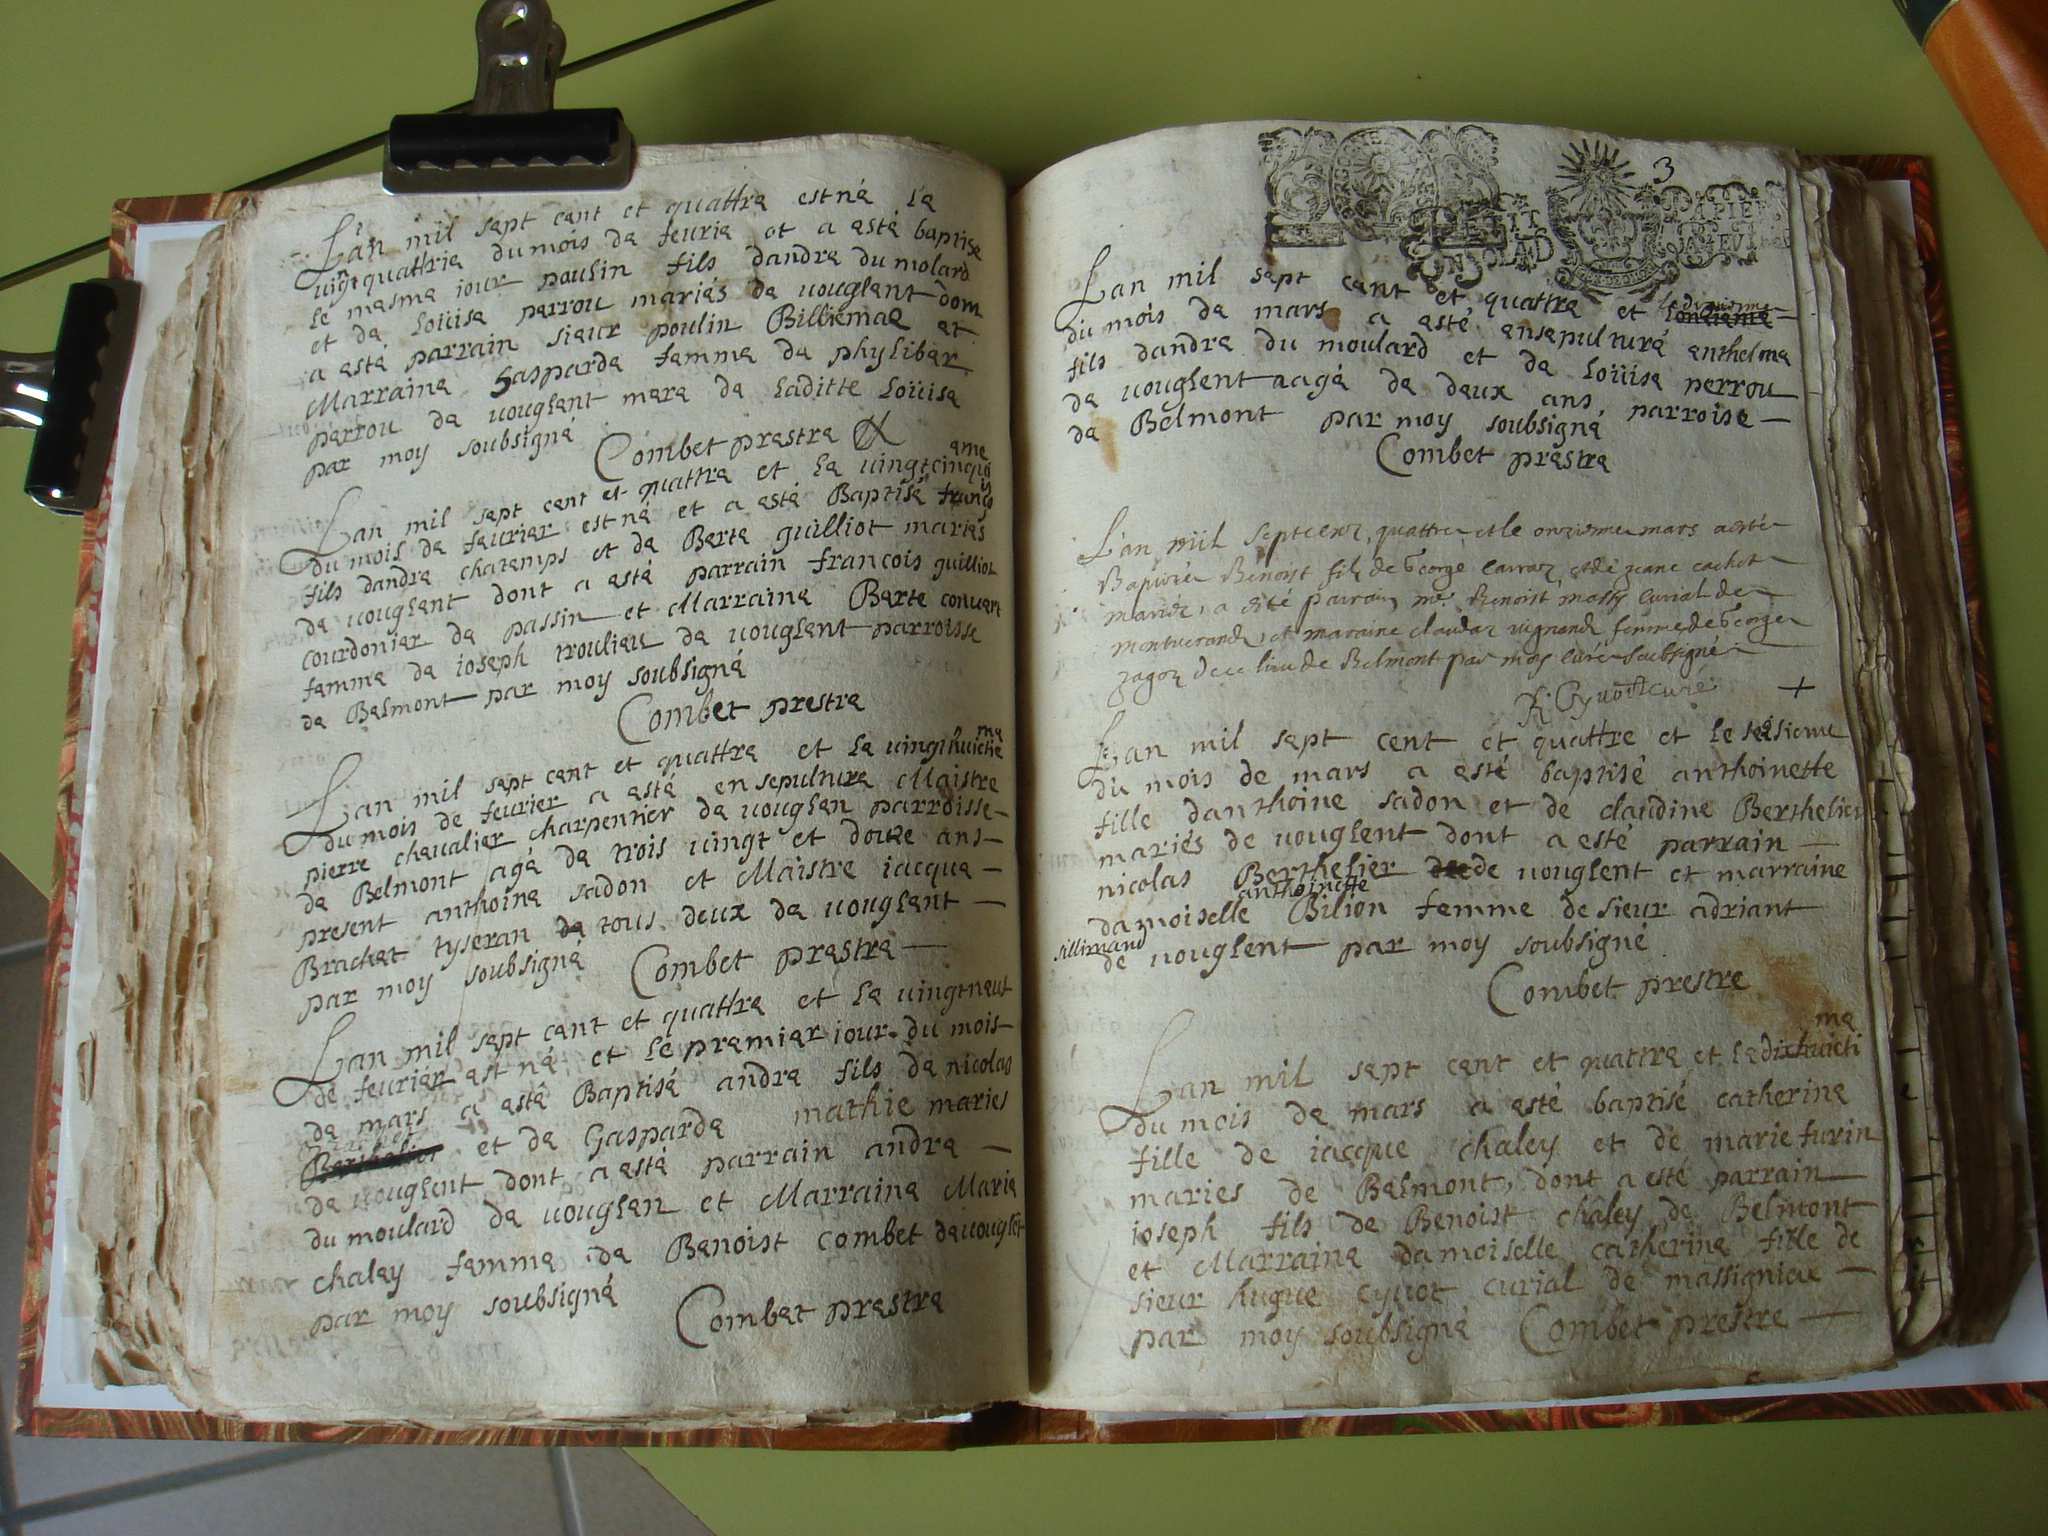 Lan mil sept cent et quattre est né le
vingt quattrie du mois de feurie et a esté baptise
le mesme iour poulin fils dandre du molard
et de loüise perrou mariés de uouglent dom
a esté parrain sieur poulin Billiemae et
Marraine Gasparde femme de phylibar
perrou de uouglent mere de laditte loüise
par moy soubsigné Combet prestre
Lan mil sept cent et quattre et le uingtcinquieme
du mois de feurier est né et a esté Baptisé françoys
fils dandre chatemps et de Berte guilliot mariés
de uouglent dont a esté parrain francois guilliot
courdonier de passin et Marraine Berte conuert
femme de ioseph troulieu de uouglent parroisse
de Belmont par moy soubsigné
Combet prestre
Lan mil sept cent et quattre et le uingthuictieme
du mois de feurier a esté ensepulture Maistre
pierre cheualier charpentier de uouglen parroisse
de Belmont agé de trois uingt et douze ans
present anthoine sadon et Maistre iacque
Brachet tyseran de tous deux de uouglent
par moy soubsigné Combet prestre
Lan mil sept cent et quattre et le uingtneuf
de feurier est né et le premier iour du mois
de mars a esté Baptisé andre fils de nicolas
et de Gasparde mathie maries
de uouglent dont a esté parrain andre
du moulard de uouglen et Marraine Marie
chaley femme de Benoist combet de uouglẽt
par moy soubsigné
Combet prestre
3
Lan mil sept cent et quattre et le dixiesme
du mois de mars a esté ensepulturé anthelme
fils dandre du moulard et de loüise perrou
de uouglent aagé de deux ans, parroise
de Belmont par moy soubsigné
Combet prestre
L'an mil sept cent quattre et le onziesme mars a esté
Baptisé Benoist filz de George carraz et de jeane cachet
mariéz, a esté parrain me. Benoist massy curial de
et maraine claudaz uignand femme de George
de ce lieu de Belmont par moy curé soubsigné
curé +
Lan mil sept cent et quattre et le seisieme
du mois de mars a esté baptisé anthoinette
fille danthoine sadon et de claudine Berthelier
mariés de uouglent dont a esté parrain
nicolas Berthelier de uouglent et marraine
damoiselle anthoinette Bilion femme de sieur adriant
sillimand de uouglent par moy soubsigné
Combet prestre
Lan mil sept cent et quattre et le dixhuictieme
du mois de mars a esté baptisé catherine
fille de iacque chaley et de marie furin
maries de Belmont, dont a esté parrain
ioseph fils de Benoist chaley de Belmont
et Marraine damoiselle catherine fille de
sieur hugue cyuot curial de massignieu
par moy soubsigné Combet prestre